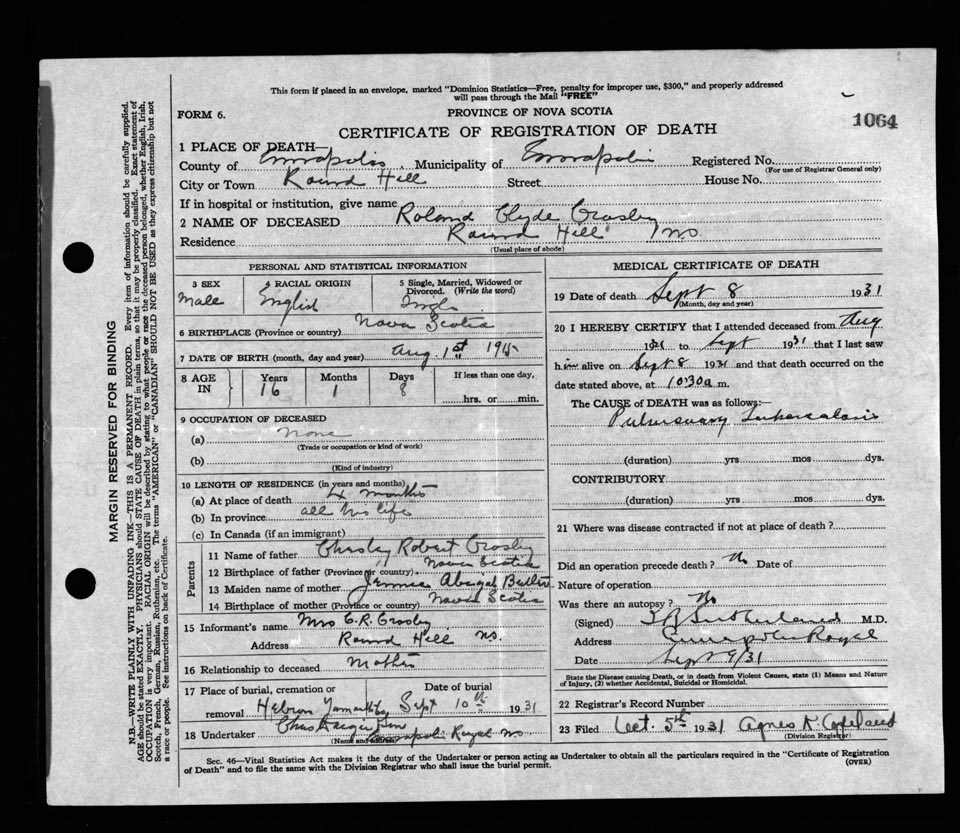 This form if placed in an envelope, marked "Dominion Statistics—Free, penalty for improper use, $300," and properly addressed
will pass through the Mail "FREE"
FORM 6.
PROVINCE OF NOVA SCOTIA
1064
CERTIFICATE OF REGISTRATION OF DEATH
1 PLACE OF DEATH—
County of Annapolis Municipality of Annapolis Registered No.
(For use of Registrar General only)
City or Town Round Hill Street House No.
If in hospital or institution, give name
2 NAME OF DECEASED Roland Clyde Crosby
Residence Round Hill N.S.
(Usual place of abode)
PERSONAL AND STATISTICAL INFORMATION
3 SEX 4 RACIAL ORIGIN 5 Single, Married, Widowed or
Divorced. (Write the word)
Male English Single
6 BIRTHPLACE (Province or country) Nova Scotia
7 DATE OF BIRTH (month, day and year) Aug. 1st 1915
8 AGE IN Years Months Days If less than one day,
16 1 8 hrs. or min.
9 OCCUPATION OF DECEASED
(a) None
(Trade or occupation or kind of work)
(b)
(Kind of industry)
10 LENGTH OF RESIDENCE (in years and months)
(a) At place of death 4 months
(b) In province all his life
(c) In Canada (if an immigrant)
Parents
11 Name of father Robert Crosby
12 Birthplace of father (Province or country) Nova Scotia
13 Maiden name of mother Jennie Abigal
14 Birthplace of mother (Province or country) Nova Scotia
15 Informant's name Mrs C.R. Crosby
Address Round Hill N.S.
16 Relationship to deceased Mother
17 Place of burial, cremation or Date of burial
removal Hebron Sept 10th 1931
18 Undertaker
(Name and address) Annapolis Royal N.S.
MEDICAL CERTIFICATE OF DEATH
19 Date of death Sept 8 1931
(Month, day and year)
20 I HEREBY CERTIFY that I attended deceased from Aug
1931 to Sept 1931 that I last saw
him alive on Sept 8 1931 and that death occurred on the
date stated above, at 10:30 a m.
The CAUSE of DEATH was as follows:—
Pulmonary Tuberculosis
(duration) yrs mos dys.
CONTRIBUTORY
(duration) yrs mos dys.
21 Where was disease contracted if not at place of death?
Did an operation precede death? No Date of
Nature of operation
Was there an autopsy? No
(Signed) Sutherland M.D.
Address Annapolis Royal
Date Sept 9/31
State the Disease causing Death, or in death from Violent Causes, state (1) Means and Nature
of Injury, (2) whether Accidental, Suicidal or Homicidal.
22 Registrar's Record Number
23 Filed Oct. 5th 1931 Agnes K. Copeland
(Division Registrar)
Sec. 46—Vital Statistics Act makes it the duty of the Undertaker or person acting as Undertaker to obtain all the particulars required in the "Certificate of Registration
of Death" and to file the same with the Division Registrar who shall issue the burial permit.
(OVER)
MARGIN RESERVED FOR BINDING
N.B.—WRITE PLAINLY WITH UNFADING INK—THIS IS A PERMANENT RECORD. Every item of information should be carefully supplied.
AGE should be stated EXACTLY. PHYSICIANS should STATE CAUSE OF DEATH in plain terms, so that it may be properly classified. Exact statement of
OCCUPATION is very important. RACIAL ORIGIN will be described by stating to what people or race the deceased person belonged, whether English, Irish,
Scotch, French, German, Russian, Ruthenian, etc. The terms "AMERICAN" or "CANADIAN" SHOULD NOT BE USED as they express citizenship but not
a race or people. See instructions on back of Certificate.